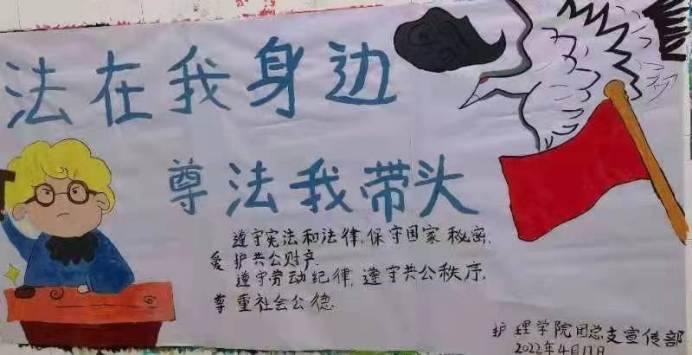 法在我身边
尊法我带头
遵守宪法和法律,保守国家秘密,
爱护共公财产.
遵守劳动纪律,遵守共公秩序.
尊重社会公德.
护理学院团总支宣传部
2022年4月17日